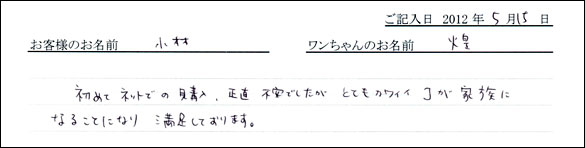 ご記入日 2012 年 5 月 15 日
お客様のお名前 小林 ワンちゃんのお名前 煌
初めて ネットでの 購入、正直 不安でしたが とてもカワイイ コが 家族に
なることになり 満足しております。